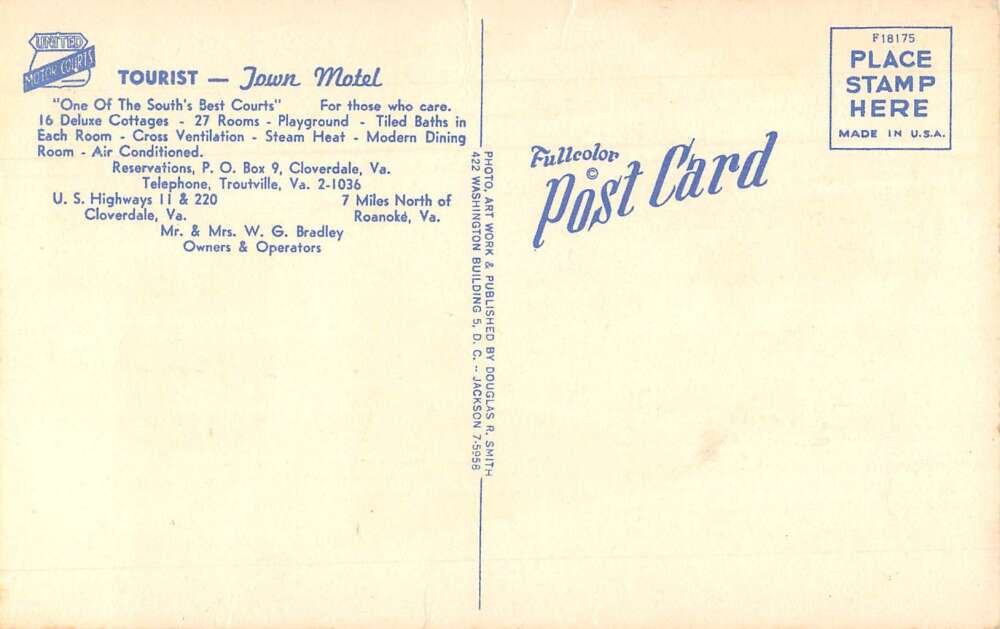 UNITED
MOTOR COURTS
TOURIST — Town Motel
"One Of The South's Best Courts" For those who care.
16 Deluxe Cottages - 27 Rooms - Playground - Tiled Baths in
Each Room - Cross Ventilation - Steam Heat - Modern Dining
Room - Air Conditioned.
Reservations, P. O. Box 9, Cloverdale, Va.
Telephone, Troutville, Va. 2-1036
U. S. Highways 11 & 220 7 Miles North of
Cloverdale, Va. Roanoke, Va.
Mr. & Mrs. W. G. Bradley
Owners & Operators
PHOTO, ART WORK & PUBLISHED BY DOUGLAS R. SMITH
422 WASHINGTON BUILDING 5, D. C. -- JACKSON 7-5958
Fullcolor
©
Post Card
F18175
PLACE
STAMP
HERE
MADE IN U.S.A.